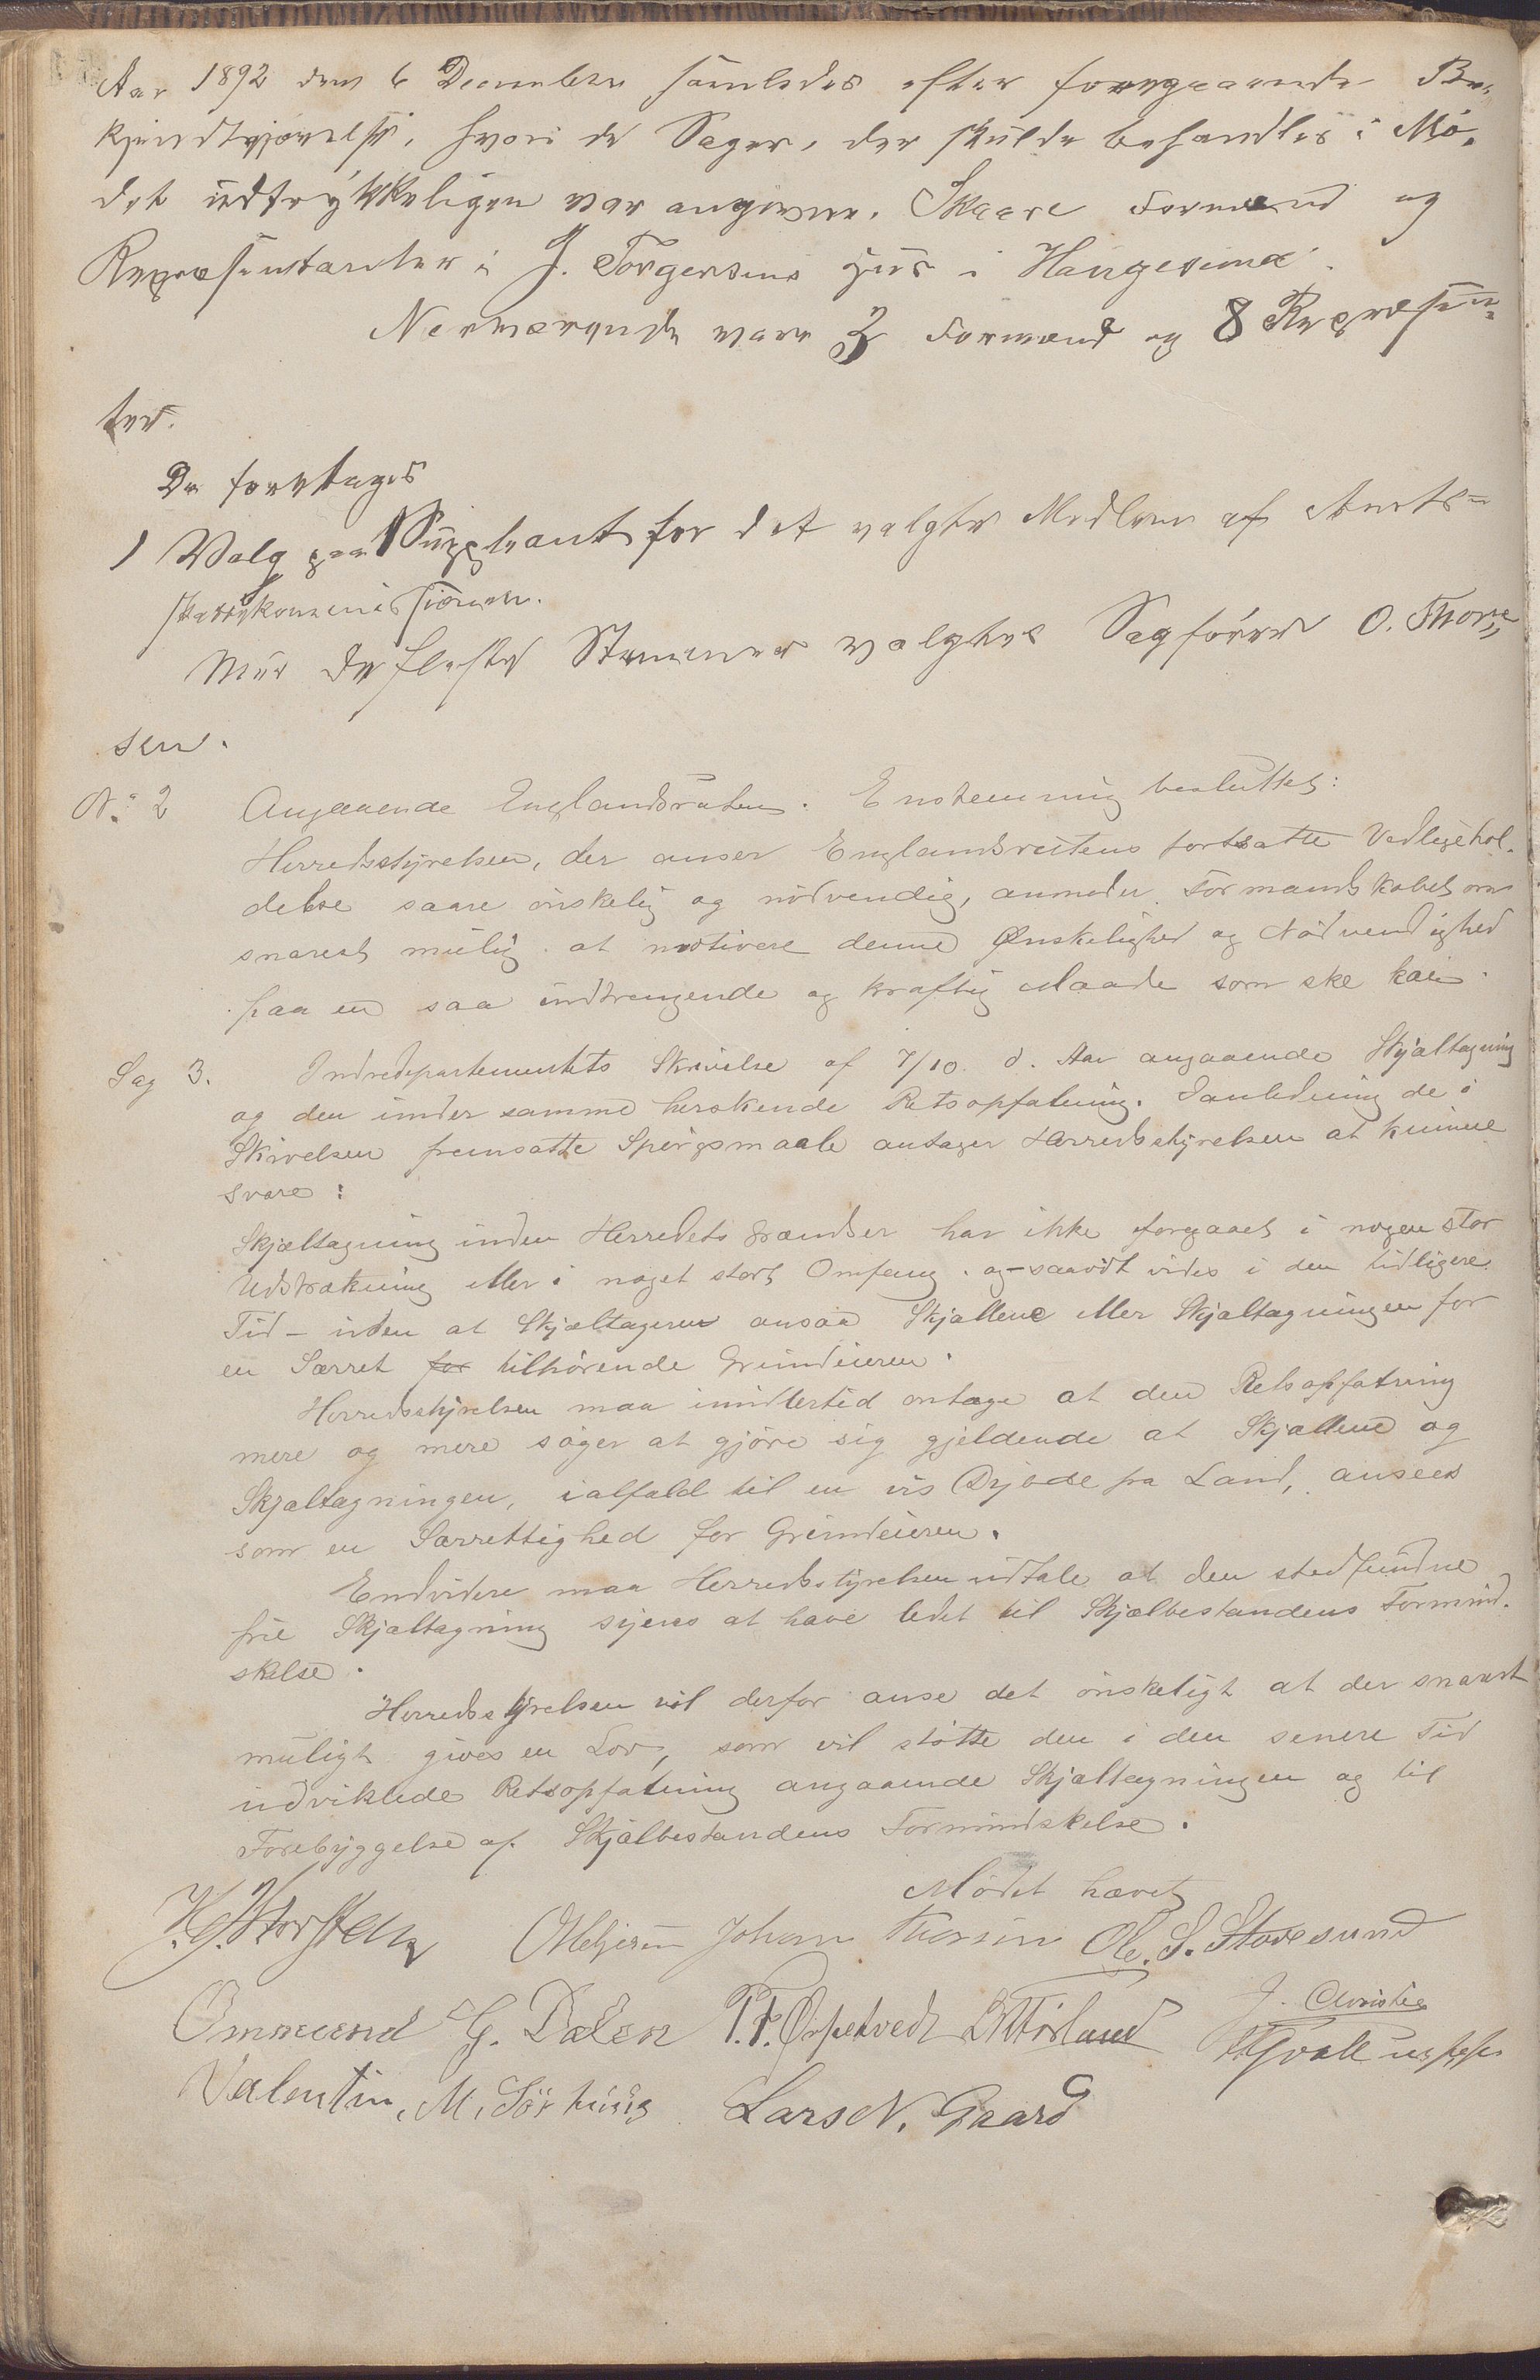 Aar 1892 den 6 December samledes efter foregaaende Be-
kjendtgjørelse, hvori de Sager, der skulde behandles i Mö-
det udtrykkeligen var angivne, Skaare Formænd og
Repræsentanter i J. Torgersens Hus i Haugesund.
Nærværende vare 3 Formænd og 8 Repræsen-
ter.
De foretages
1 Valg paa 1 Suppleant for det valgte Medlem af Amts-
skattekommissionen.
Med de fleste Stemmer valgtes Sagförer O. Thor-
sen.
No. 2 Angaaende Englandsruten. Enstemmig besluttet:
Herredsstyrelsen, der anser Englandsrutens fortsatte Vedligehol-
delse saare önskelig og nödvendig, anmoder Formandskabet om
snarest mulig at motivere denne Ønskelighed og Nödvendighed
paa en saa indtrængende og kraftig Maade som ske kan.
Sag 3. Indredepartementets Skrivelse af 7/10 d. Aar angaaende Skjæltagning
og den under samme herskende Retsopfatning. I anledning de i
Skrivelsen fremsatte Spörgsmaale antager Herredsstyrelsen at kunne
svare:
Skjæltagning inden Herredets Grændser har ikke foregaaet i nogen stor
Udstrækning eller i noget stort Omfang og - saavidt vides i den tidligere
Tid - uden at Skjæltagerne ansaa Skjællene eller Skjæltagningen for
en Særret for tilhörende Grundeieren.
Herredsstyrelsen maa imidlertid antage at den Retsopfatning
mere og mere söger at gjöre sig gjeldende at Skjællene og
Skjæltagningen, ialfald til en vis Dybde fra Land, ansees
som en Særrettighed for Grundeieren.
Endvidere maa Herredsstyrelsen udtale at den stedfundne
frie Skjæltagning synes at have ledet til Skjælbestandens Formind-
skelse.
Herredsstyrelsen vil derfor anse det önskeligt at der snarest
muligt gives en Lov, som vil stötte den i den senere Tid
udviklede Retsopfatning angaaende Skjæltagningen og til
Forebyggelse af Skjælbestandens Formindskelse.
Mödet hævet
Johan Thorsen Ole. S. Storesund
Ommund G. Dalen J. Christie
Valentin. M. Sörhuus Lars N. Gaard